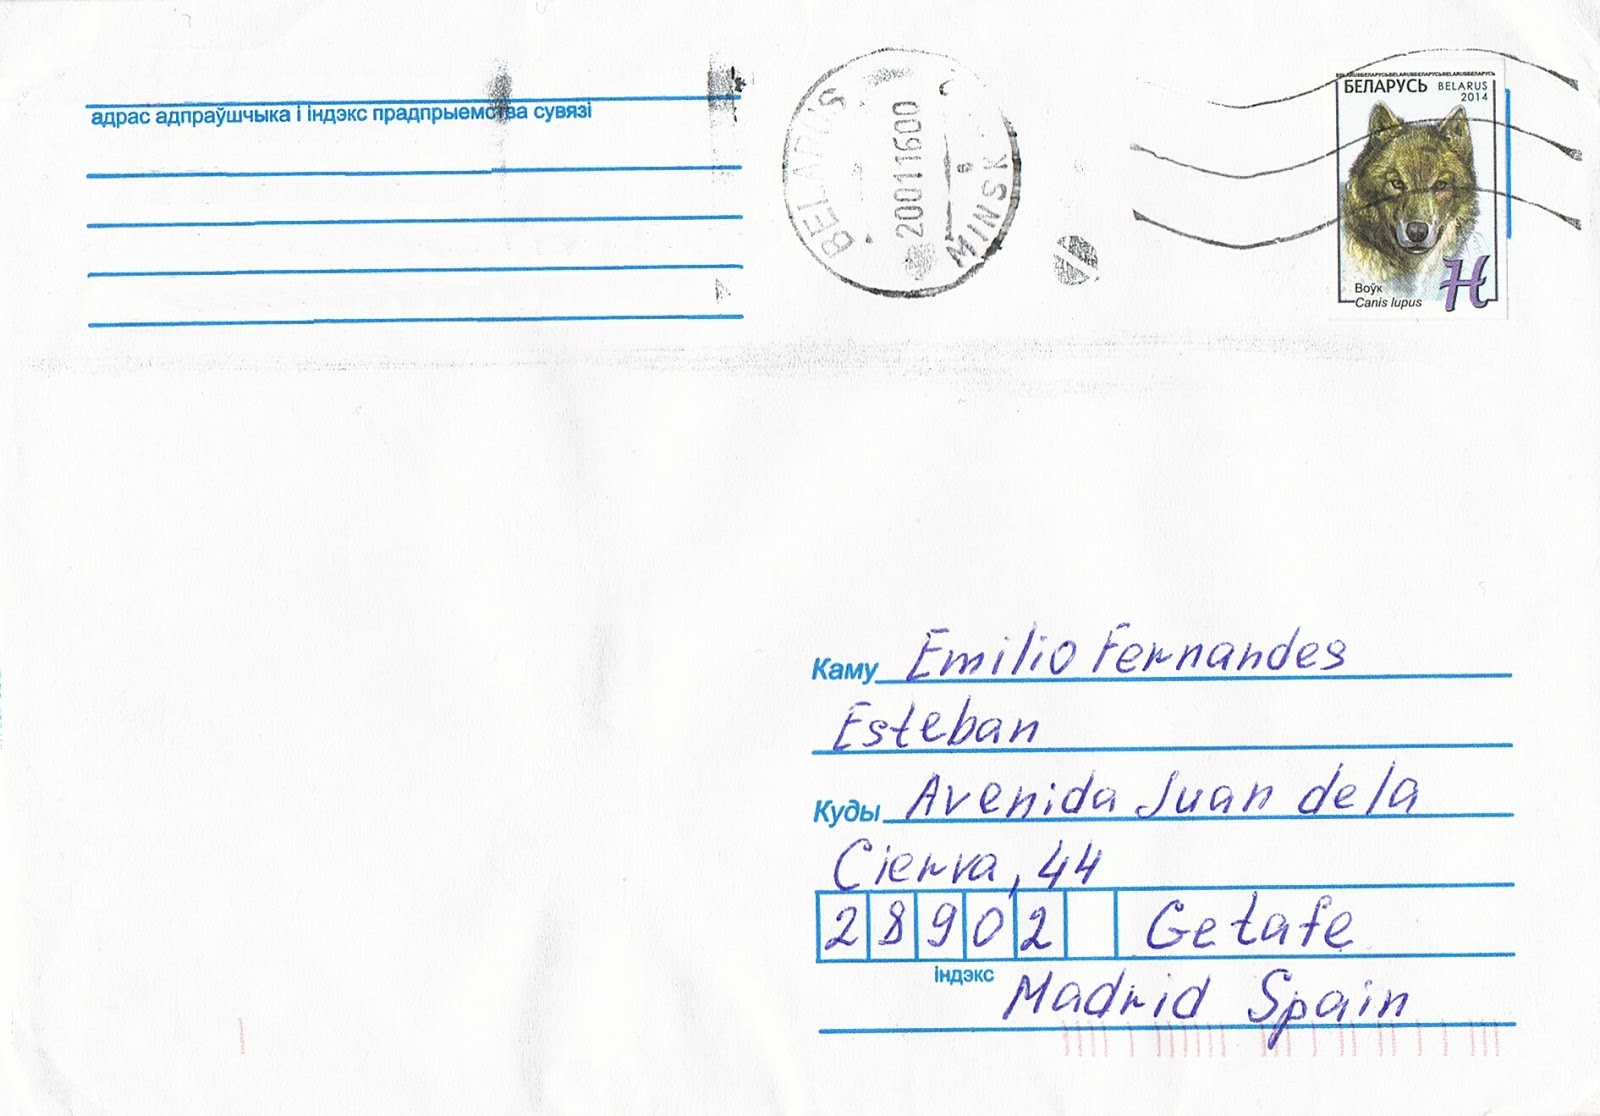 адрас адпраўшчыка і індэкс прадпрыемства сувязі
BELARUS
20011600
MINSK
BELARUSБЕЛАРУСЬBELARUSБЕЛАРУСЬBELARUSБЕЛАРУСЬ
БЕЛАРУСЬ BELARUS
2014
Воўк
Canis lupus
H
Каму Emilio Fernandes
Esteban
Куды Avenida Juan de la
Cierva, 44
28902 Getafe
індэкс
Madrid Spain